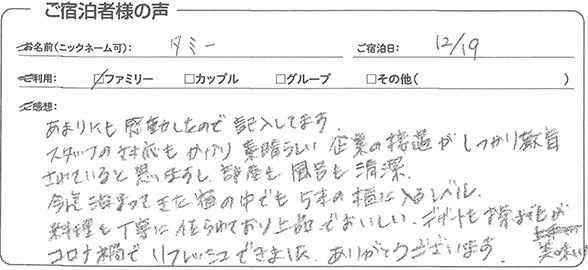 ご宿泊者様の声
お名前(ニックネーム可): タミー ご宿泊日: 12/19
ご利用: ☑ファミリー □カップル □グループ □その他( )
ご感想:
あまりにも感動したので記入してます
スタッフの対応もかなり素晴らしい 企業の接遇がしっかり徹底
されていると思いますし、部屋も風呂も清潔。
今迄泊まってきた宿の中でも5本の指に入るレベル。
料理も丁寧に作られており上品でおいしい。デザートもお菓子も
コロナ禍でリフレッシュできました。ありがとうございます。 美味しい